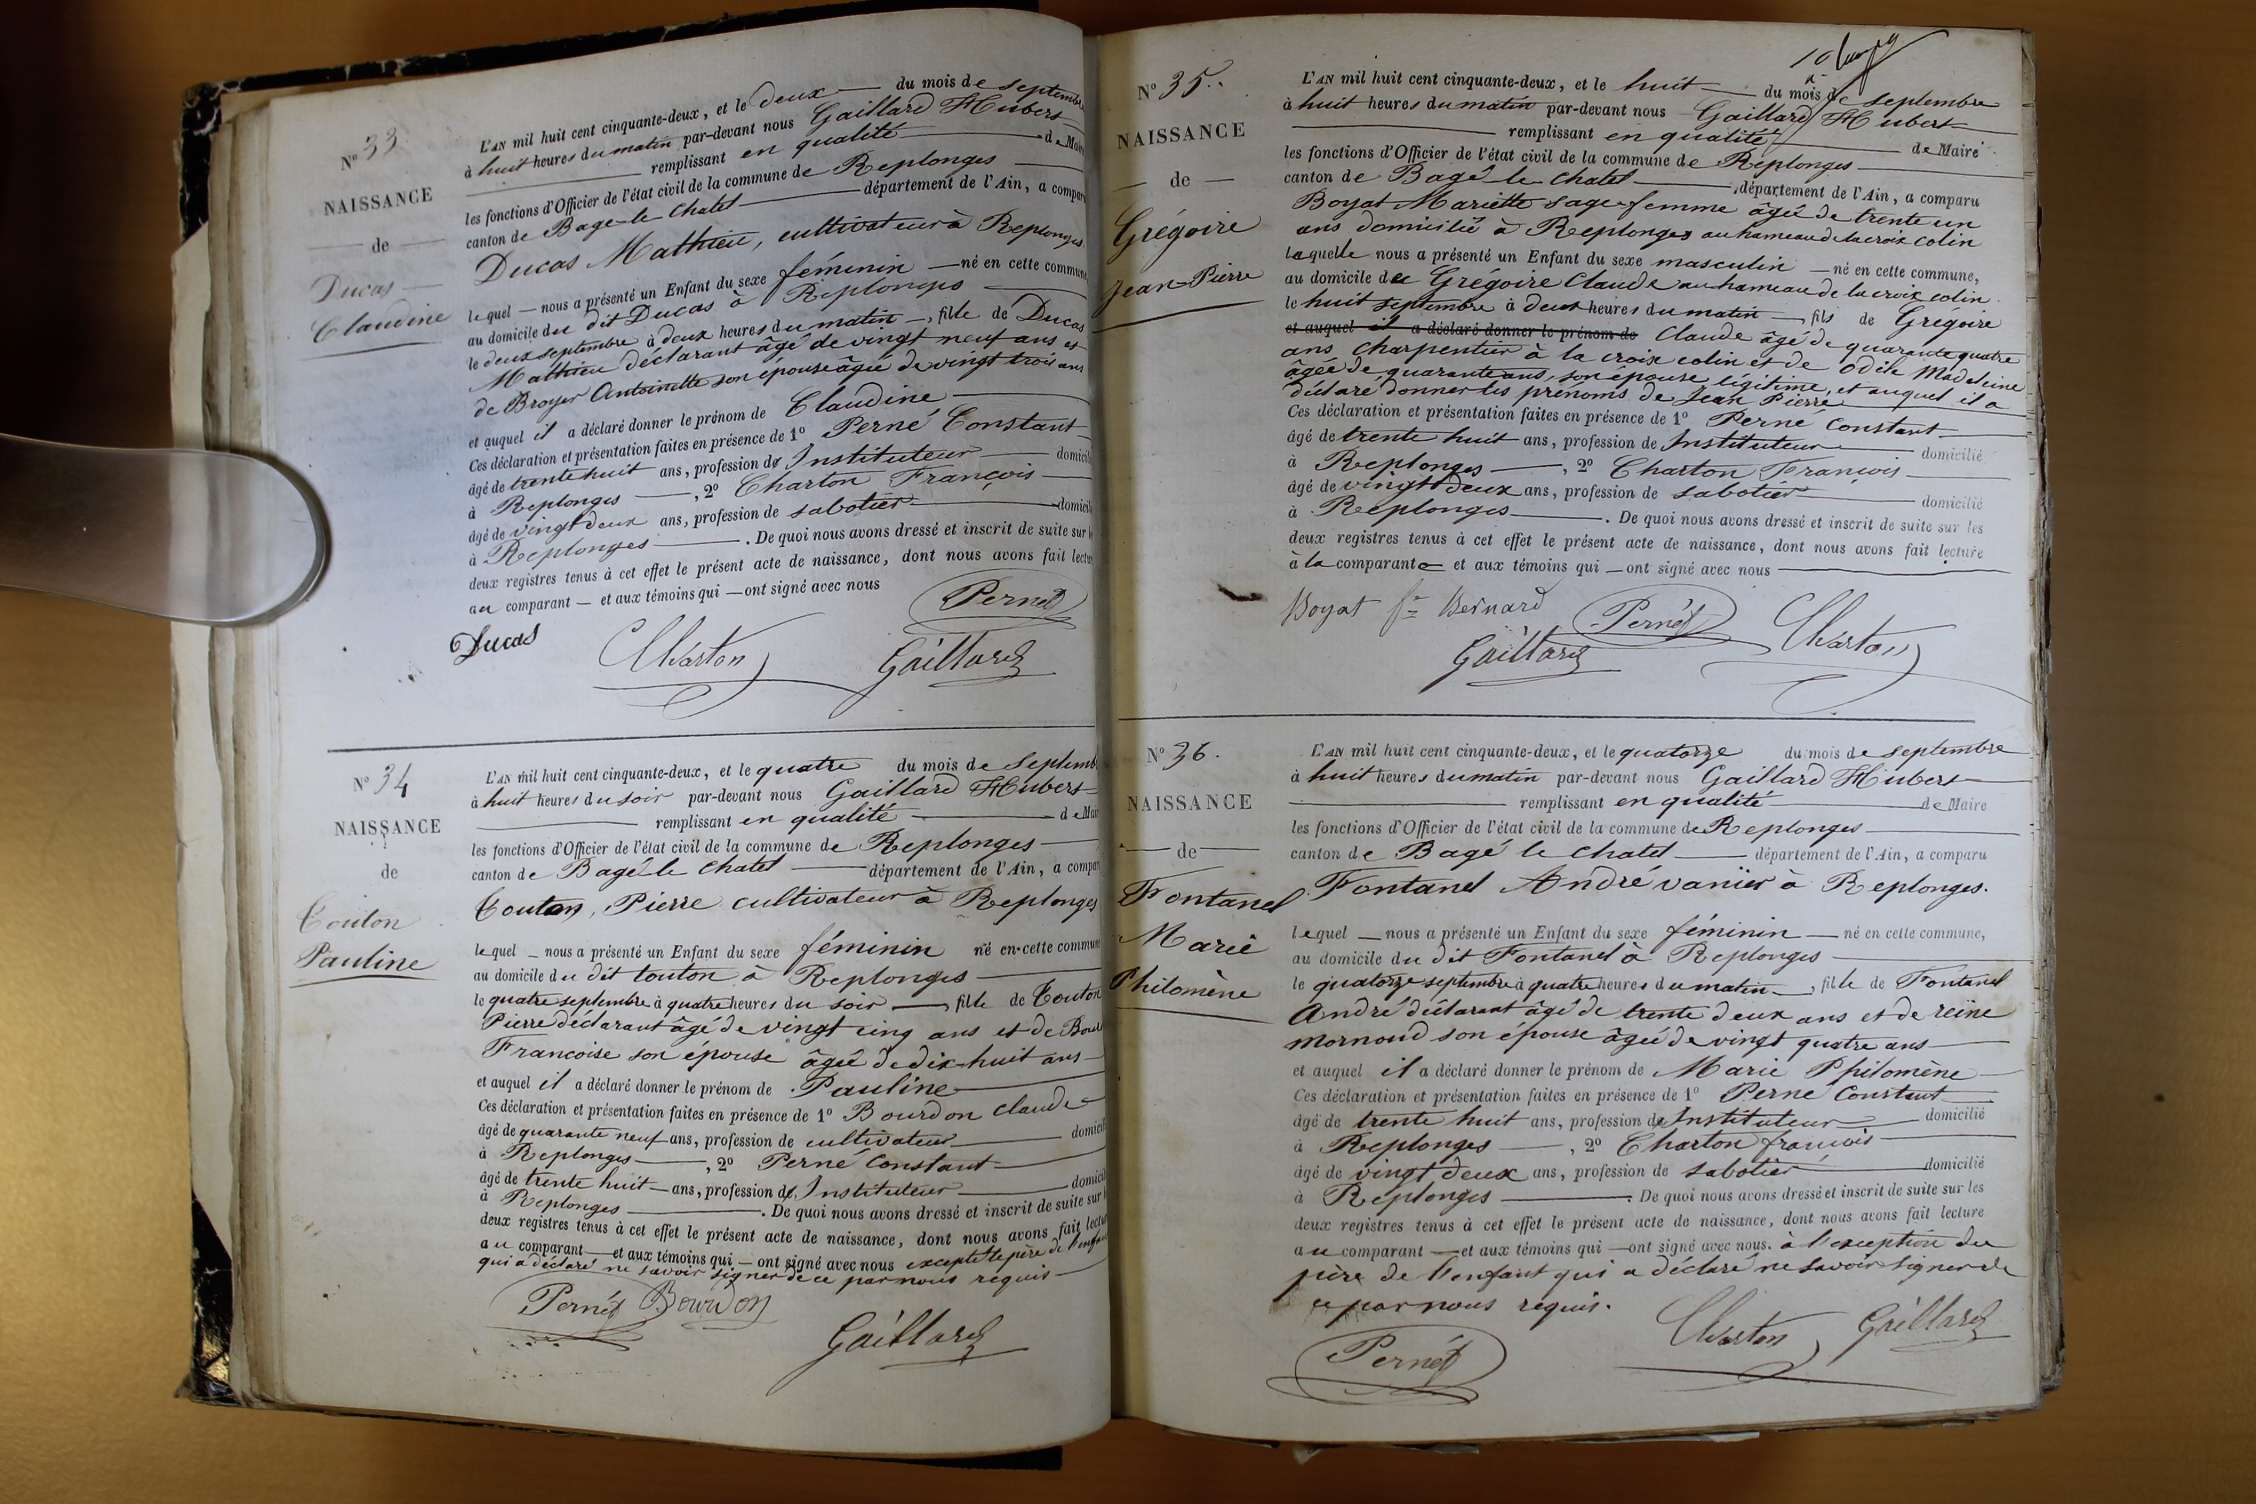 N° 33
NAISSANCE
de
Ducas
Claudine
L'AN mil huit cent cinquante-deux, et le deux du mois de septembre
à huit heures du matin par-devant nous Gaillard Hubert
remplissant en qualité de Maire
les fonctions d'Officier de l'état civil de la commune de Replonges
canton de Bagé-le-Chatel département de l'Ain, a comparu
Ducas Mathieu, cultivateur à Replonges
lequel nous a présenté un Enfant du sexe féminin né en cette commune
au domicile du dit Ducas à Replonges
le deux septembre à deux heures du matin, fille de Ducas
Mathieu déclarant âgé de vingt neuf ans et
de Broyer Antoinette son épouse âgée de vingt trois ans
et auquel il a déclaré donner le prénom de Claudine
Ces déclaration et présentation faites en présence de 1° Perné Constant
âgé de trente huit ans, profession de Instituteur domicilié
à Replonges, 2° Charton François
âgé de vingt deux ans, profession de sabotier domicilié
à Replonges. De quoi nous avons dressé et inscrit de suite sur les
deux registres tenus à cet effet le présent acte de naissance, dont nous avons fait lecture
au comparant et aux témoins qui ont signé avec nous
Pernet
Ducas Charton Gaillard
N° 34
NAISSANCE
de
Couton
Pauline
L'AN mil huit cent cinquante-deux, et le quatre du mois de septemb
à huit heures du soir par-devant nous Gaillard Hubert
remplissant en qualité de Mair
les fonctions d'Officier de l'état civil de la commune de Replonges
canton de Bagé le Chatel département de l'Ain, a compar
Couton, Pierre cultivateur à Replonges
lequel nous a présenté un Enfant du sexe féminin né en cette commune
au domicile du dit Couton à Replonges
le quatre septembre à quatre heures du soir, fille de Couton
Pierre déclarant âgé de vingt cinq ans et de
Francoise son épouse âgée de dix-huit ans
et auquel il a déclaré donner le prénom de Pauline
Ces déclaration et présentation faites en présence de 1° Bourdon Claude
âgé de quarante neuf ans, profession de cultivateur domicilié
à Replonges, 2° Perné Constant
âgé de trente huit ans, profession de Instituteur domicil
à Replonges. De quoi nous avons dressé et inscrit de suite sur
deux registres tenus à cet effet le présent acte de naissance, dont nous avons fait lectur
au comparant et aux témoins qui ont signé avec nous excepté le père de l'enfant
qui a déclaré ne savoir signer de ce par nous requis
Pernet Bourdon
Gaillard
10
N° 35.
NAISSANCE
de
Grégoire
Jean-Pierre
L'AN mil huit cent cinquante-deux, et le huit du mois de septembre
à huit heures du matin par-devant nous Gaillard Hubert
remplissant en qualité de Maire
les fonctions d'Officier de l'état civil de la commune de Replonges
canton de Bagé le Chatel département de l'Ain, a comparu
Boyat Mariette sage-femme âgée de trente un
ans domicilié à Replonges au hameau de la croix colin
laquelle nous a présenté un Enfant du sexe masculin né en cette commune,
au domicile de Grégoire Claude au hameau de la croix colin
le huit septembre à deux heures du matin, fils de Grégoire
et auquel il a déclaré donner le prénom de Claude âgé de quarante quatre
ans charpentier à la croix colin et de Odile Madeleine
âgée de quarante ans, son épouse légitime, et auquel il a
déclaré donner les prénoms de Jean Pierre
Ces déclaration et présentation faites en présence de 1° Perné Constant
âgé de trente huit ans, profession de Instituteur domicilié
à Replonges, 2° Charton François
âgé de vingt deux ans, profession de sabotier domicilié
à Replonges. De quoi nous avons dressé et inscrit de suite sur les
deux registres tenus à cet effet le présent acte de naissance, dont nous avons fait lecture
à la comparante et aux témoins qui ont signé avec nous
Boyat fe Bernard Pernet Charton
Gaillard
N° 36.
NAISSANCE
de
Fontanel
Marie
Philomène
L'AN mil huit cent cinquante-deux, et le quatorze du mois de septembre
à huit heures du matin par-devant nous Gaillard Hubert
remplissant en qualité de Maire
les fonctions d'Officier de l'état civil de la commune de Replonges
canton de Bagé le Chatel département de l'Ain, a comparu
Fontanel André vanier à Replonges.
lequel nous a présenté un Enfant du sexe féminin né en cette commune,
au domicile du dit Fontanel à Replonges
le quatorze septembre à quatre heures du matin, fille de Fontanel
André déclarant âgé de trente deux ans et de reine
mornand son épouse âgée de vingt quatre ans
et auquel il a déclaré donner le prénom de Marie Philomène
Ces déclaration et présentation faites en présence de 1° Perné Constant
âgé de trente huit ans, profession de Instituteur domicilié
à Replonges, 2° Charton françois
âgé de vingt deux ans, profession de sabotier domicilié
à Replonges. De quoi nous avons dressé et inscrit de suite sur les
deux registres tenus à cet effet le présent acte de naissance, dont nous avons fait lecture
au comparant et aux témoins qui ont signé avec nous. à l'exception du
père de l'enfant qui a déclaré ne savoir signer de
ce par nous requis.
Charton Gaillard
Pernet